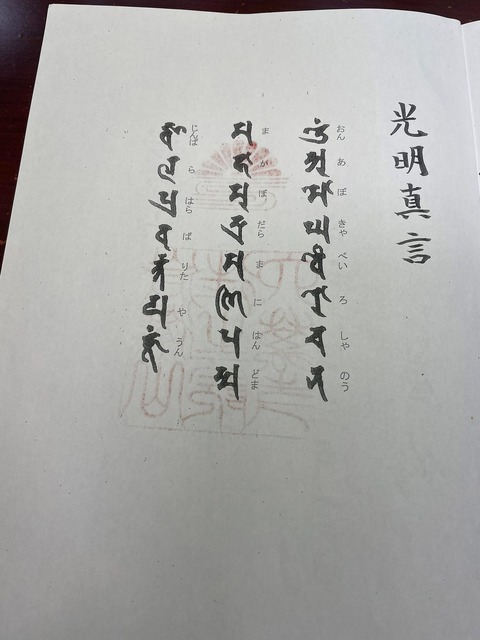 光明真言
𑖌𑖼 𑖀 𑖦𑖺 𑖑 𑖪𑖹 𑖨𑖺 𑖓 𑖡
おん あ ぼ きゃ べい ろ しゃ のう
𑖦 𑖮𑖯 𑖦𑖲 𑖟𑖿𑖨𑖯 𑖦 𑖜𑖰 𑖢 𑖟𑖿𑖦
ま か ぼ だら ま に はん どま
𑖕𑖿𑖪 𑖩 𑖢𑖿𑖨 𑖪 𑖨𑖿𑖝 𑖧 𑖮𑖳𑖽
じんば ら はら ば りた や うん